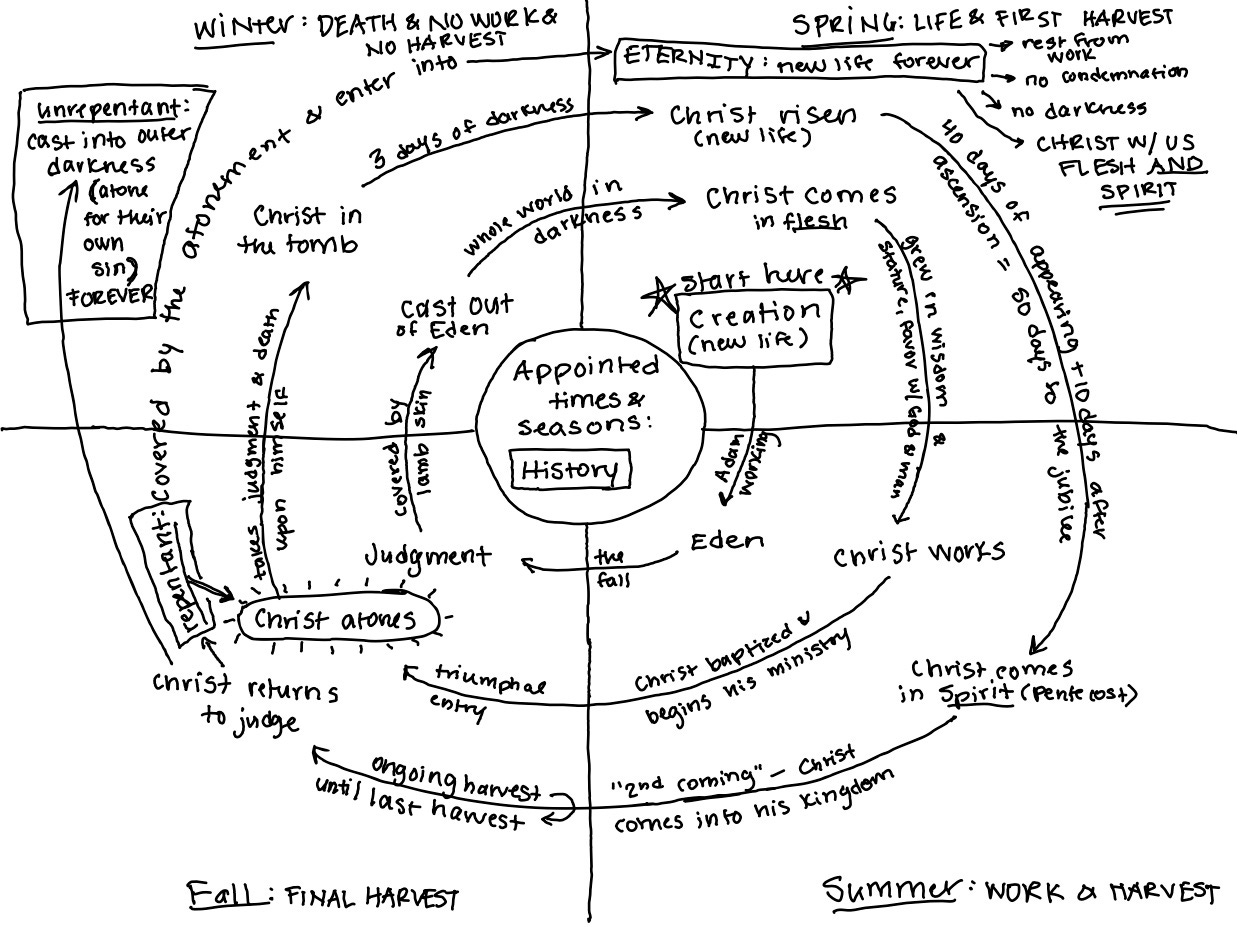 Winter: DEATH & NO WORK &
NO HARVEST
SPRING: LIFE & FIRST HARVEST
ETERNITY: new life forever
rest from
work
no condemnation
no darkness
CHRIST W/ US
FLESH AND
SPIRIT
unrepentant:
cast into outer
darkness
(atone
for their
own
sin)
FOREVER
repentant: covered by the atonement & enter into
3 days of darkness
Christ risen
(new life)
40 days of appearing + 10 days after
ascension = 50 days to the jubilee
Christ in
the tomb
whole world in
darkness
Christ comes
in flesh
grew in wisdom &
stature, favor w/ God & man
start here
Creation
(new life)
cast out
of Eden
Appointed
times &
seasons:
History
takes judgment & death
upon himself
covered by
lamb skin
Adam
working
Judgment
the
fall
Eden
Christ works
Christ atones
Christ baptized &
begins his ministry
triumphal
entry
Christ returns
to judge
Christ comes
in Spirit (Pentecost)
ongoing harvest
until last harvest
"2nd coming" - Christ
comes into his kingdom
Fall: FINAL HARVEST
Summer: WORK & HARVEST